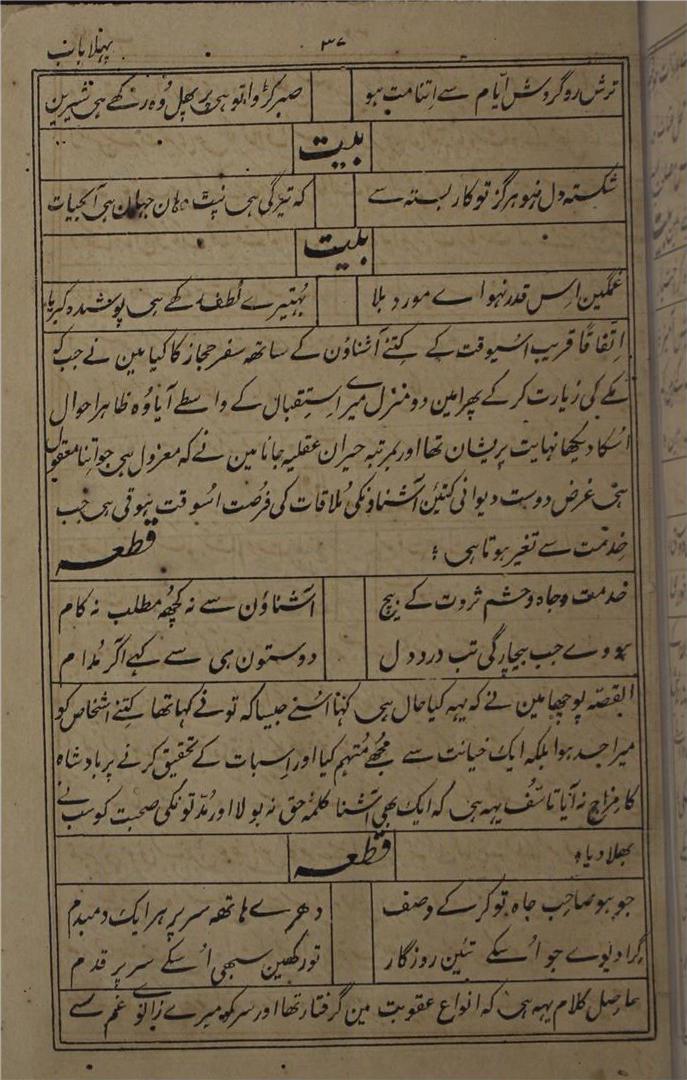 ۳۷ پہلا باب
ترش رو گردش ایّام سے اِتنا مت ہو صبر کڑوا تو ہی پر پھل وُہ رکھے ہی شیرین
بیت
شکستہ دل نہو ہرگز تو کار بستہ سے کہ تیرگی ہی نپٹ وہان جہان ہی آبحیات
بیت
غمگین اِس قدر نہو اے مورد بلا بُہتیرے لُطف کے ہی پوشیدہ کبریا
اِتفاقًا قریب اُسیوقت کے کِتنے آشناؤن کے ساتھہ سفر حجاز کا کیا مین نے جب کو
مکّے کی زیارت کر کے پھرا مین دو منزل میرے اِستقبال کے واسطے آیا وُہ ظاہرا حوال
اُسکا دیکھا نہایت پریشان تھا اور بمرتبہ حیران عقلیہ جانا مین نے کہ معزول ہی جو اِتنا معقول
ہی غرض دوست دیوانی کتئین آشناونکی مُلاقات کی فُرصت اُسوقت ہوتی ہی جب
خِدمت سے تغیر ہوتا ہی ؛ قطعہ
خدمت و جاہ و حشم ثروت کے بیچ آشناؤن سے نہ کچھُ مطلب نہ کام
ہووے جب بیچارگی تب درد دل دوستون ہی سے کہے اکر مُدام
القصّہ پوچھا مین نے کہ یہہ کیا حال ہی کہنا اُسنے جیسا کہ تو نے کہا تھا کِتنے اشخاص کو
میرا حسد ہوا بلکہ ایک خیانت سے مجھے مُتہم کیا اور اِسبات کے تحقیق کرنے پر بادشاہ
کا مِزاج نہ آیا تاسّف یہہ ہی کہ ایک بھی آشنا کلمۂ حق نہ بولا اور مُدّتونکی صحبت کو سب نے
بھلا دیا ۰ قطعہ
جو ہو صاحب جاہ تو کر کے وصف دھرے ہاتھہ سر پر ہر ایک دمبدم
گرا دیوے جو اُسکے تئین روزگار تو رکھین سبھی اُسکے سر پر قدم
حاصل کلام یہہ ہی کہ انواع عقوبت مین گرفتار تھا اور سر کو میرے زانوے غم سے